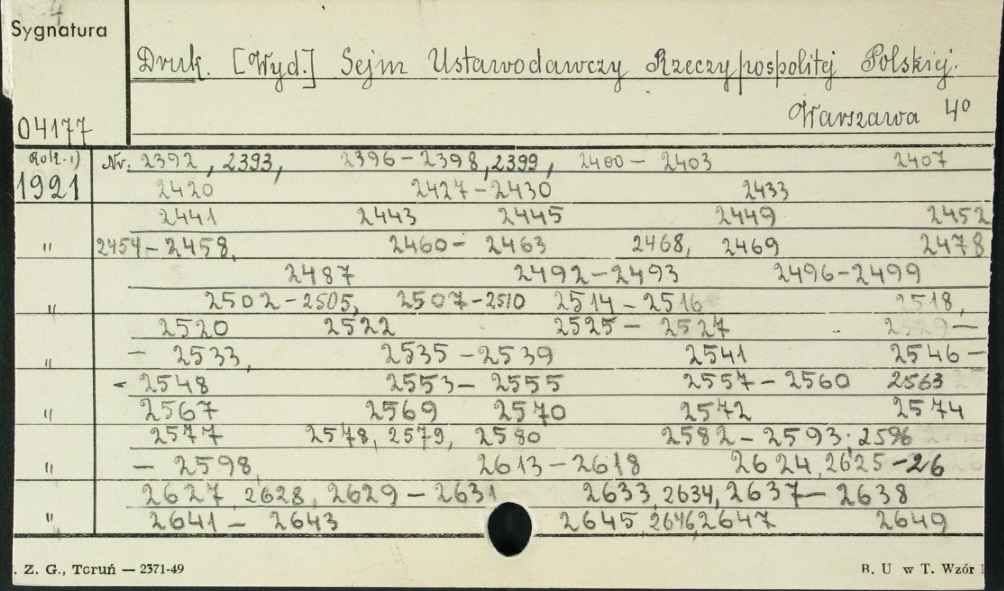 Sygnatura
Druk. [Wyd.] Sejm Ustawodawczy Rzeczypospolitej Polskiej.
Warszawa 4°
04177
Nr. 2392, 2393, 2396-2398, 2399, 2400-2403 2407
1921 2420 2427-2430 2433
2441 2443 2445 2449 2452
" 2454-2458, 2460- 2463 2468, 2469 2478
2487 2492-2493 2496-2499
" 2502-2505, 2507-2510 2514-2516 2518,
2520 2522 2525- 2527 2529-
" - 2533, 2535-2539 2541 2546-
- 2548 2553-2555 2557-2560 2563
" 2567 2569 2570 2572 2574
2577 2578, 2579, 2580 2582-2593; 2596
" - 2598, 2613-2618 2624, 2625-26
2627, 2628, 2629-2631 2633, 2634, 2637-2638
" 2641- 2643 2645, 2646, 2647 2649
. Z. G., Toruń — 2371-49 B. U w T. Wzór